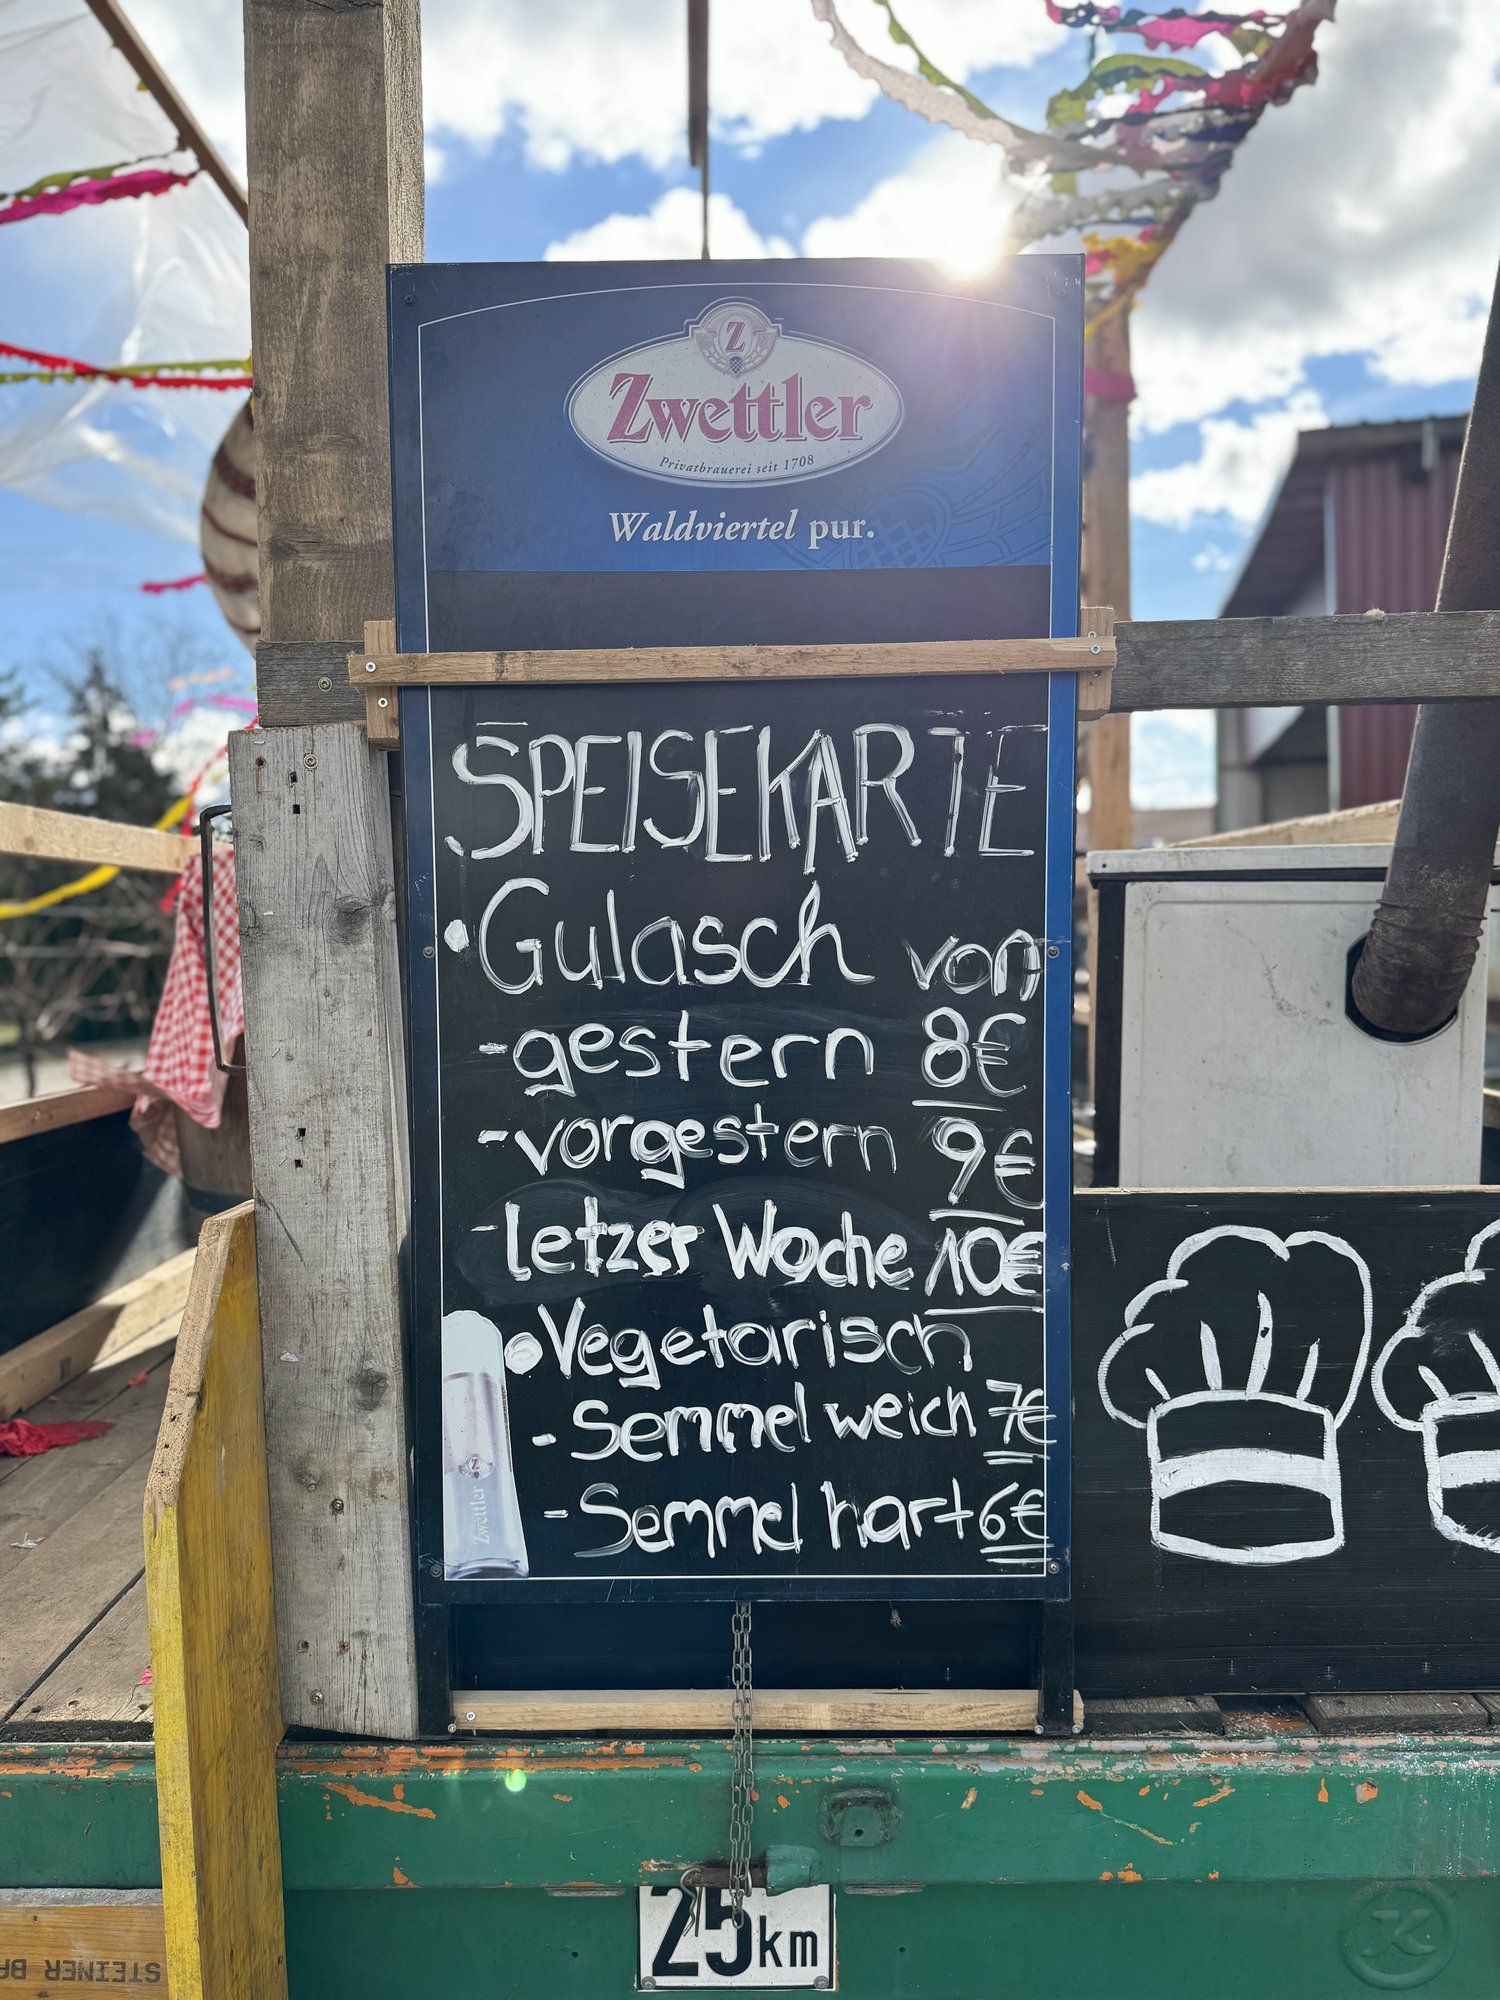 Z
Zwettler
Privatbrauerei seit 1708
Waldviertel pur.
SPEISEKARTE
• Gulasch von
- gestern 8€
- vorgestern 9€
- letzer Woche 10€
• Vegetarisch
- Semmel weich 7€
- Semmel hart 6€
Z
Zwettler
25km
STEINER BA